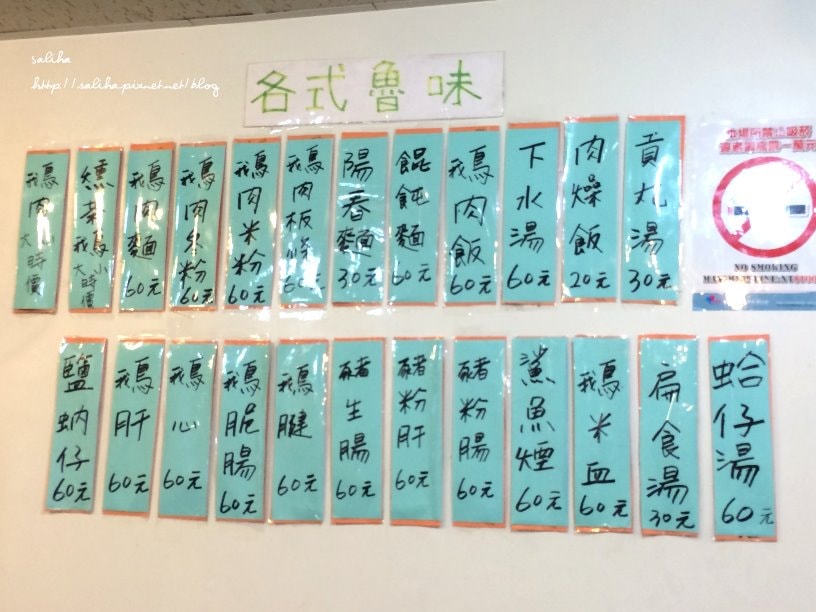 saliha
http://saliha.pixnet.net/blog
各式魯味
鵝肉 大小 時價
燻茶鵝 大小 時價
鵝肉麵 60元
鵝肉冬粉 60元
鵝肉米粉 60元
鵝肉板條 60元
陽春麵 30元
餛飩麵 60元
鵝肉飯 60元
下水湯 60元
肉燥飯 20元
貢丸湯 30元
本場所禁止吸菸
NO SMOKING
鹽蚋仔 60元
鵝肝 60元
鵝心 60元
鵝脆腸 60元
鵝腱 60元
豬生腸 60元
豬粉肝 60元
豬粉腸 60元
鯊魚煙 60元
鵝米血 60元
扁食湯 30元
蛤仔湯 60元